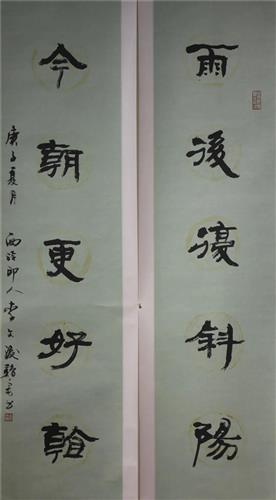 雨後復斜陽
今朝更好看
庚子夏月
西泠印人李文